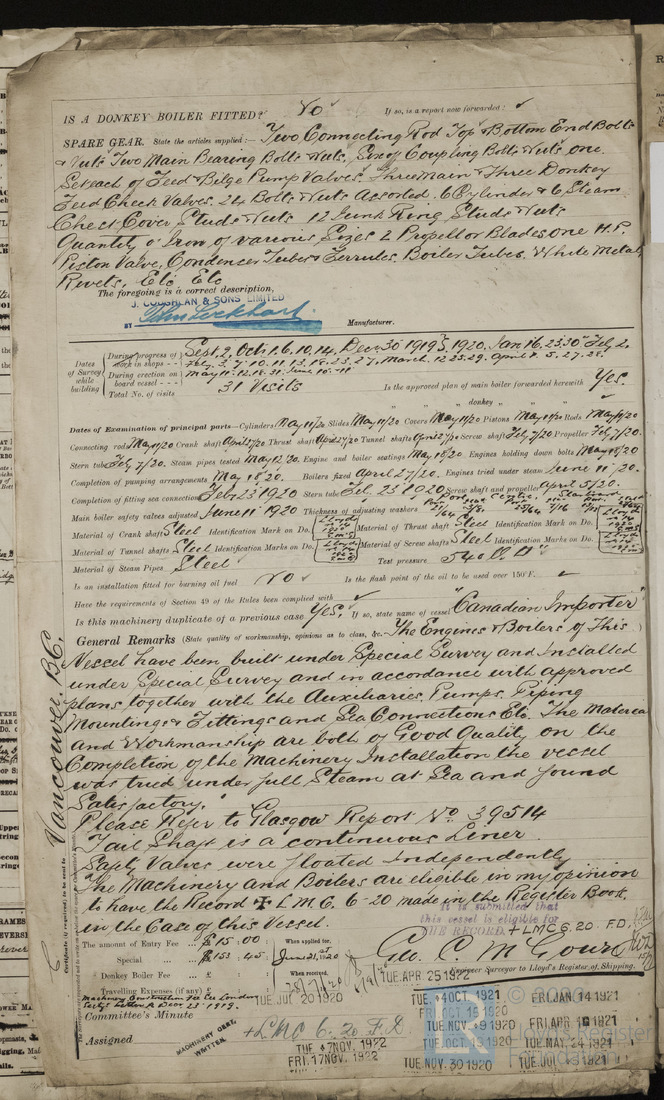 IS A DONKEY BOILER FITTED? No If so, is a report now forwarded?
SPARE GEAR. State the articles supplied:— Two Connecting Rod Top & Bottom End Bolts
& Nuts Two Main Bearing Bolts & Nuts, Six off Coupling Bolts & Nuts one
Set each of Feed & Bilge Pump Valves. Three Main & Three Donkey
Feed Check Valves. 24 Bolts & Nuts Assorted. 6 Cylinder & 6 Steam
Chest Cover Studs & Nuts 12 Junk Ring Studs & Nuts
Quantity o' Iron of various Sizes 2 Propellor Blades one H.P.
Piston Valve, Condenser Tubes & Ferrules. Boiler Tubes. White Metal,
Revets, Etc Etc
The foregoing is a correct description,
J. COUGHLAN & SONS LIMITED
BY John Lockhart Manufacturer.
Dates of Survey while building
During progress of work in shops - - Sept. 2, Oct 1, 6, 10, 14, Dec 30 1919 & 1920. Jan 16, 23, 30 Feb. 2,
During erection on board vessel - - - May 11. 12. 18. 31. June 10. 11
Total No. of visits 31 Visits Is the approved plan of main boiler forwarded herewith Yes.
" " " donkey " " "
Dates of Examination of principal parts—Cylinders May 11/20 Slides May 11/20 Covers May 11/20 Pistons May 11/20 Rods May 11/20
Connecting rods May 11/20 Crank shaft April 27/20 Thrust shaft April 27/20 Tunnel shafts April 27/20 Screw shaft Feb. 7/20 Propeller Feb. 7/20.
Stern tube Feb. 7/20. Steam pipes tested May 12/20. Engine and boiler seatings May 18/20 Engines holding down bolts May 18/20
Completion of pumping arrangements May 18/20. Boilers fixed April 27/20. Engines tried under steam June 11/20.
Completion of fitting sea connections Feb 23 1920 Stern tube Feb. 23 1920 Screw shaft and propeller April 5/20.
Main boiler safety valves adjusted June 11 1920 Thickness of adjusting washers
Material of Crank shaft Steel Identification Mark on Do. Material of Thrust shaft Steel Identification Mark on Do.
Material of Tunnel shafts Steel Identification Marks on Do. Material of Screw shafts Steel Identification Marks on Do.
Material of Steam Pipes Steel Test pressure 540 lb
Is an installation fitted for burning oil fuel No Is the flash point of the oil to be used over 150°F.
Have the requirements of Section 49 of the Rules been complied with
Is this machinery duplicate of a previous case Yes. If so, state name of vessel "Canadian Importer"
General Remarks (State quality of workmanship, opinions as to class, &c. The Engines & Boilers of This
Vessel have been built under Special Survey and Installed
under Special Survey and in accordance with approved
plans together with the Auxiliaries Pumps, Piping
Mountings & Fittings and Sea Connections Etc. The Material
and Workmanship are both of Good Quality on the
Completion of the Machinery Installation the vessel
was tried under full Steam at Sea and found
Satisfactory.
Please Refer to Glasgow Report No. 39514
Tail Shaft is a continuous Liner
Safety Valves were floated Independently
The Machinery and Boilers are eligible in my opinion
to have the Record + L.M.C. 6-20 made in the Register Book.
in the Case of this Vessel.
It is submitted that
this vessel is eligible for
THE RECORD. + LMC 6.20. F.D.
The amount of Entry Fee .. £15.00 When applied for,
Special ... £153.45 June 21, 1920
Donkey Boiler Fee ... £ When received,
Travelling Expenses (if any) £
Geo. C. McGown
Engineer Surveyor to Lloyd's Register of Shipping.
Machinery Construction Fee Ex London
Secty's Letter Dec 23 - 1919.
Committee's Minute TUE. JUL 20 1920
TUE. APR 25 1922
Assigned + LMC 6.20 F.D.
MACHINERY CERT. WRITTEN
TUE. 7 NOV. 1922
FRI. 17 NOV. 1922
TUE. 4 OCT 1921
TUE. NOV. 9 1920
TUE. NOV. 30 1920
FRI. JAN 14 1921
TUE. MAY. 24 1921
Vancouver. B.C.
© 2020
Lloyd's Register
Foundation